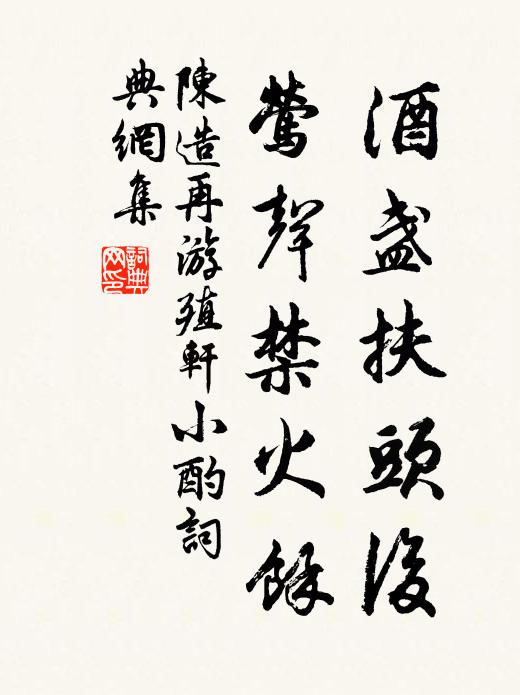 酒盞扶頭後
鶯聲禁火餘
陳造再游殖軒小酌詞
典網集
詞典網印